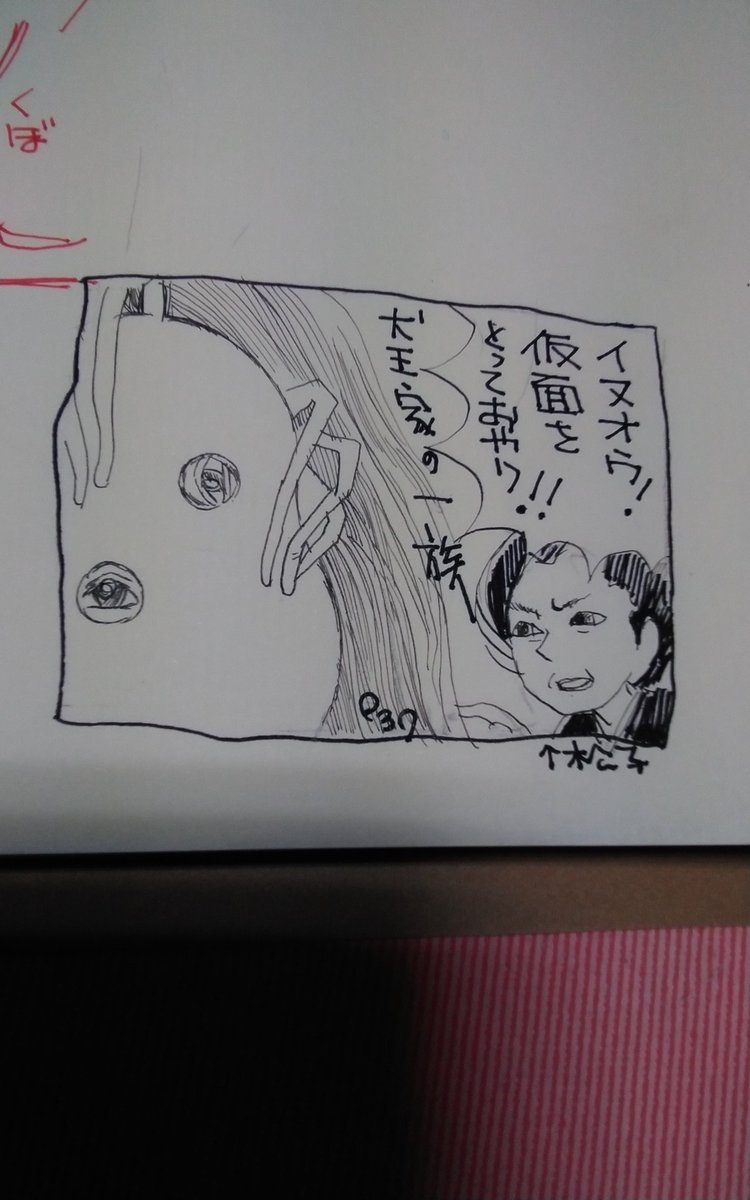 イヌオウ!
仮面を
とっておやり!!
犬王家の一族
P37
↑松子
くぼ